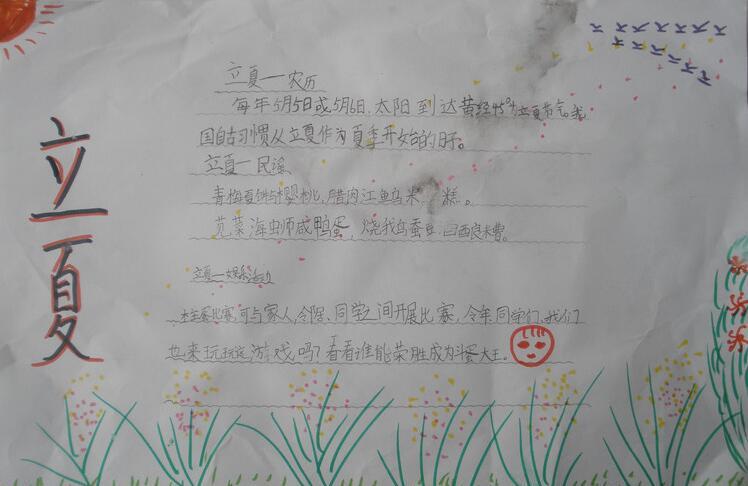 立夏
立夏一农历
每年5月5日或5月6日,太阳到达黄经45°为立夏节气。我
国自古习惯从立夏作为夏季开始的日子。
立夏一民谣
青梅夏饼与樱桃,腊肉江鱼乌米 糕。
苋菜海虫师咸鸭蛋,烧我乌蚕豆
立夏一娱乐活动
比赛,可与家人、邻居、同学之间开展比赛,令年同学们、我们
也来玩玩这游戏吗?看看谁能荣胜成为斗蛋大王。